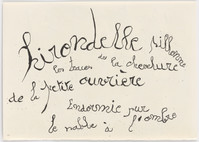 hirondelle sillonne
les traces de la chevelure
de la petite ouvrière
Endormie sur
le sable à l'ombre